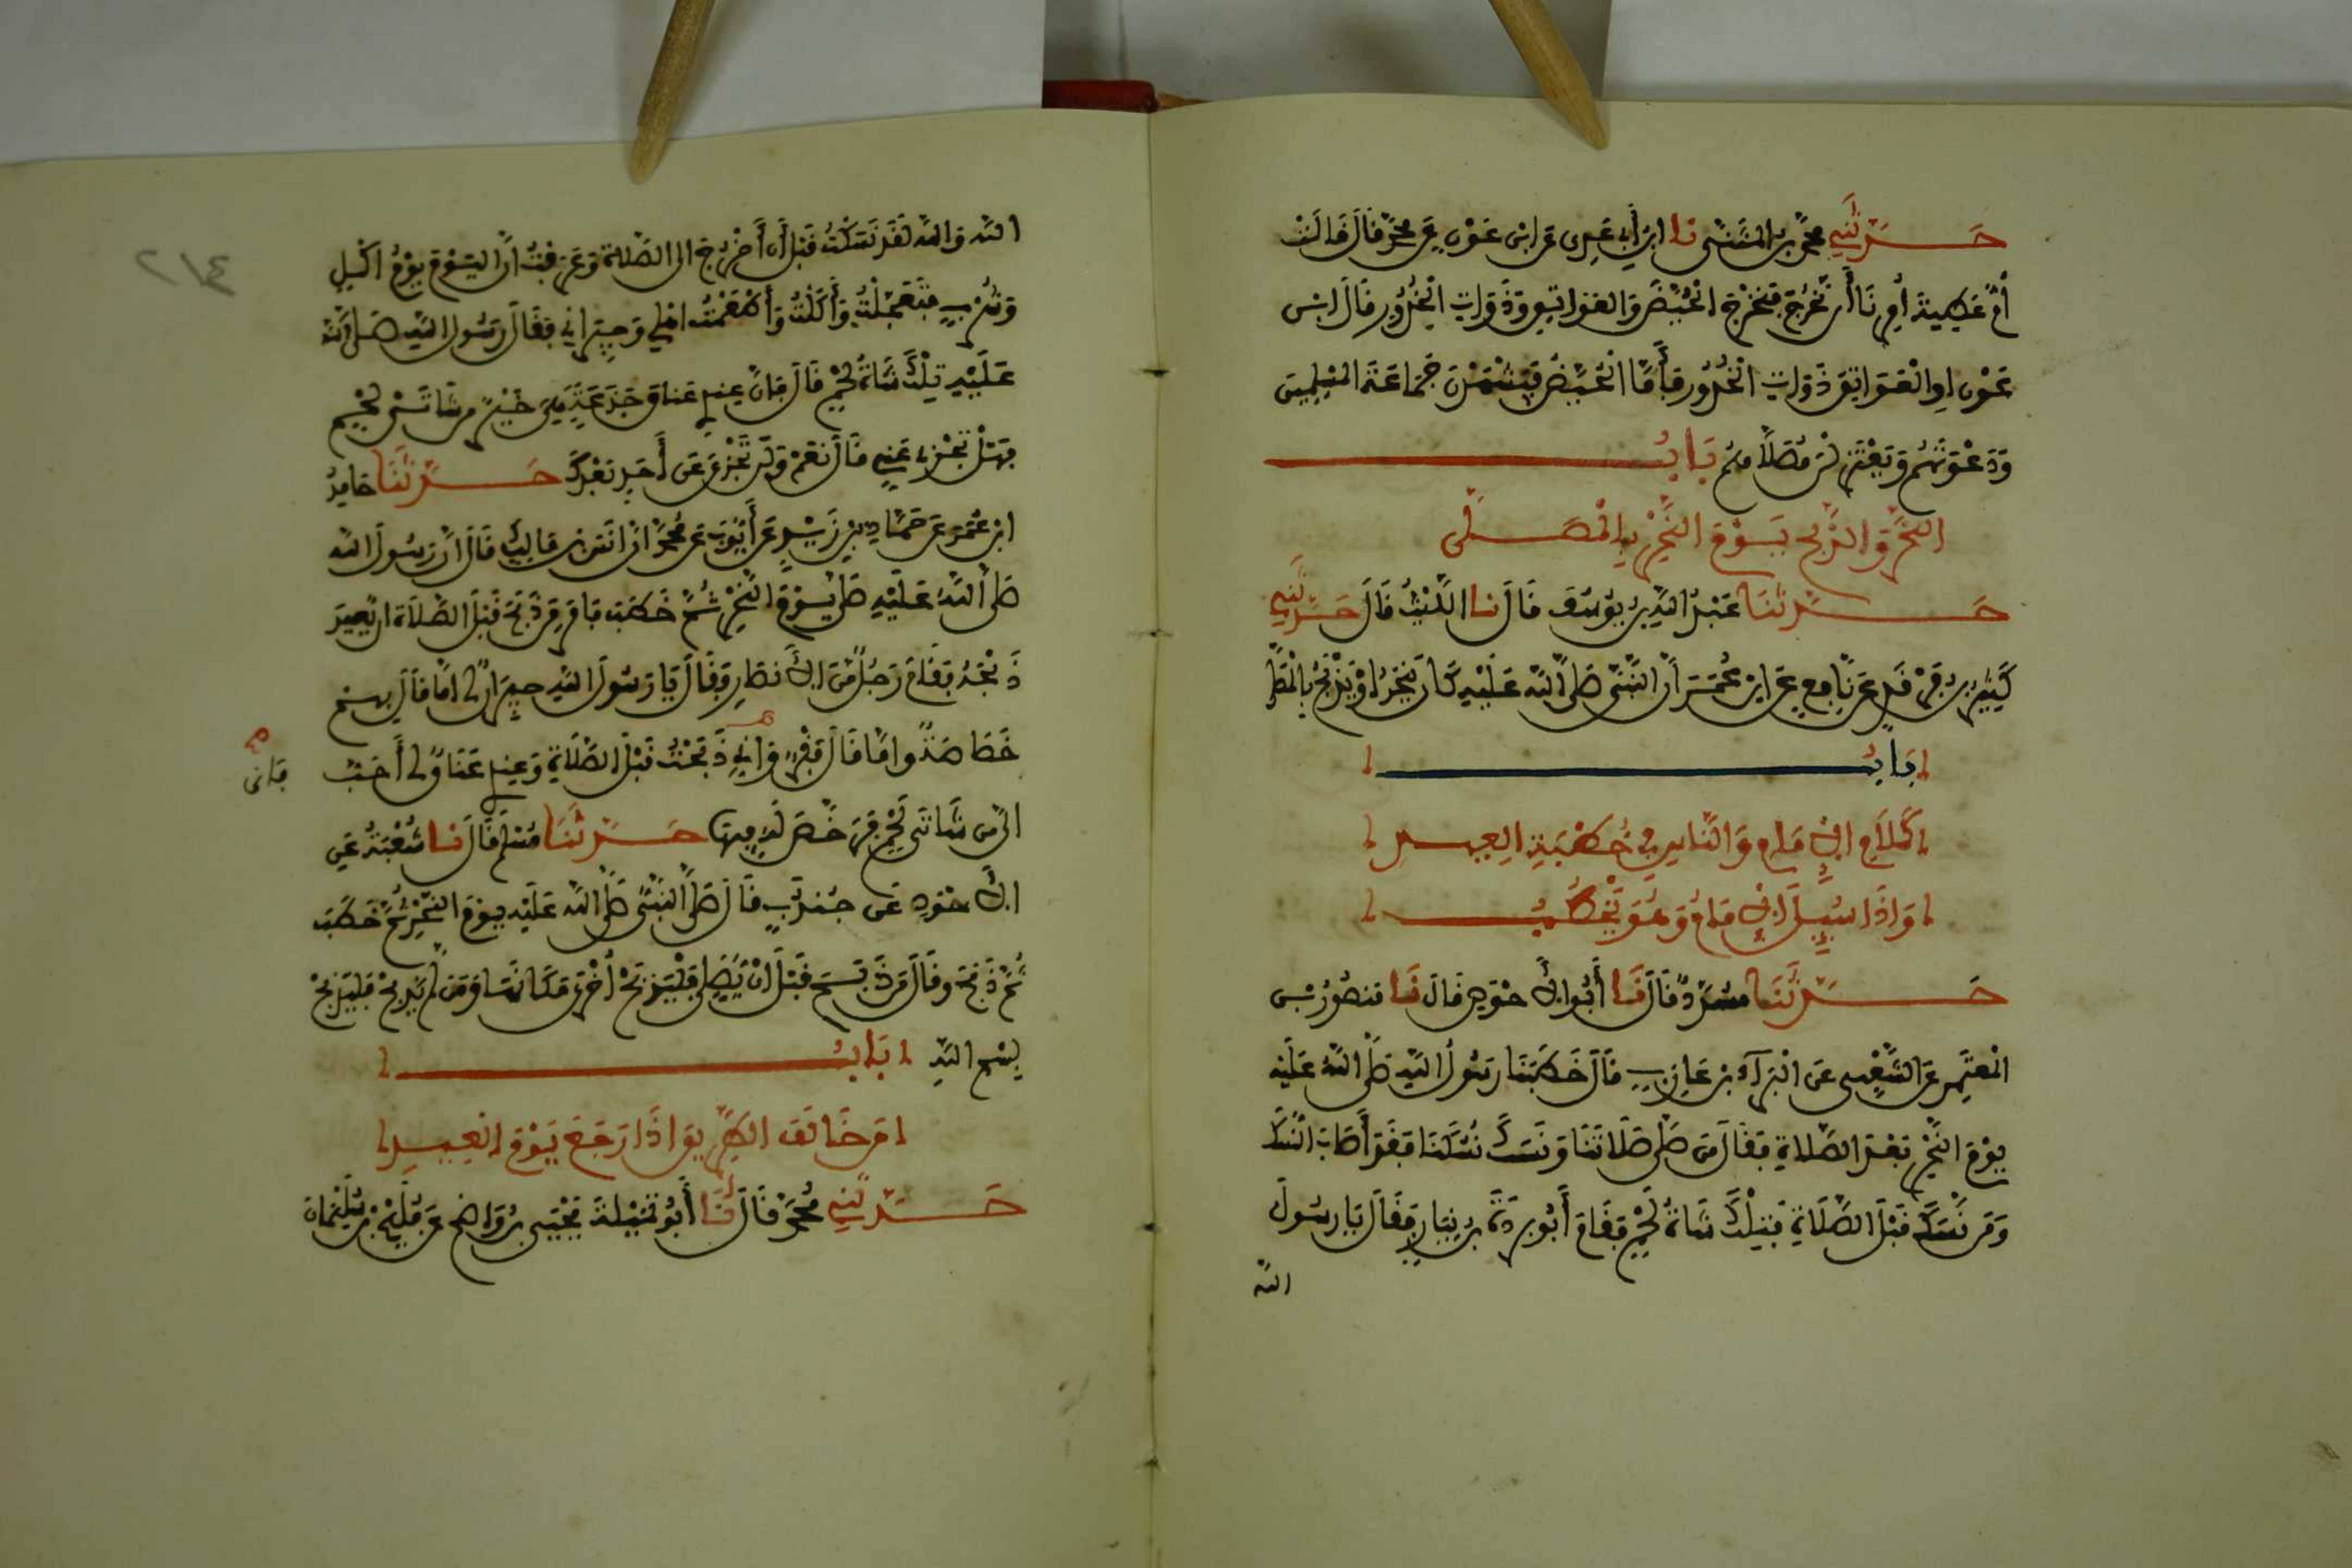 حَدَّثَنِي محمّد بن المثَنّى نا ابن أبي عَدِي عن ابن عَوْن عن محمّد قَالَ قَالَت
أمّ عَطِيةَ أُمِرْنَا أَن نَخْرُجَ فَنُخْرِجَ الْحُيَّضَ وَالعَوَاتِقَ وَذَوَاتِ الْخُدُورِ قَالَ ابن
عَوْن اوِ الْعَوَاتِقَ ذَوَاتِ الْخُدُورِ فَأَمَّا الْحُيَّضُ فَيَشْهَدْنَ جَمَاعَةَ المُسْلِمِينَ
وَدَعْوَتَهُم وَيَعْتَزِلْنَ مُصَلّاهُم بَابُ
النَّحْرِ وَالذَّبْحِ يَوْمَ النَّحْرِ بِالْمُصَلَّى
حَدَّثَنَا عَبْدُ اللَّهِ بن يُوسُفَ قَالَ نا اللَّيْثُ قَالَ حَدَّثَنِي
كَثِيرُ بن فَرْقَدٍ عَن نَّافِعٍ عَنِ ابن عُمَرَ أَنَّ النَّبِي صَلَّى اللَّه عَلَيْهِ كَانَ يَنْحَرُ أوْ يَذْبَحُ بِالْمُصَلَّى
بَابُ
كَلَامِ الإِمَامِ وَالنَّاسِ فِي خُطْبَةِ الْعِيدِ
وَإِذَا سُئِلَ الإِمَامُ وَهُوَ يَخْطُبُ
حَدَّثَنَا مسَدَّدٌ قَالَ نَا أَبُو الأحْوَصِ قَالَ نَا مَنصُورُ بن
الْمُعْتَمِرِ عَنِ الشَّعْبِي عَنِ الْبَرَآءِ بن عَازِبٍ قَالَ خَطَبَنَا رَسُولُ اللَّهِ صَلَّى اللَّهُ عَلَيْهِ
يوْمَ النَّحْرِ بَعْدَ الصَّلاةِ فَقَالَ مَن صَلَّى صَلَاتَنَا وَنَسَكَ نُسُكَنَا فَقَدْ أَصَابَ النُّسُكَ
وَمَن نَسَكَ قَبْلَ الصَّلَاةِ فَتِلْكَ شَاةُ لَحْمٍ فَقَامَ أَبُو بردَةَ بن نِيَارٍ فَقَالَ يَا رسُولَ
اللّه
اللَّه وَاللَّه لَقَد نَسَكْتُ قَبْلَ أَن أَخْرُجَ الى الصَّلاةِ وَعَرَفْتُ أَنَّ اليَوْمَ يَوْمُ أَكْلٍ
وَشُرْبٍ فَتَعَجَّلْتُ وَأَكَلْتُ وَأَطْعَمْتُ اهْلِي وَجِيرَانِي فَقَالَ رَسُولُ اللَّهِ صَلَّى اللَّه
عَلَيْهِ تِلْكَ شَاةُ لَحْمٍ قَالَ فَإِنَّ عِندِي عَنَاقَ جَذَعَةٍ هِيَ خَيْرٌ مِن شَاتَيْ لَحْمٍ
فَهَلْ تَجْزِي عَنِّي قَالَ نَعَمْ وَلَن تَجْزِيَ عَن أَحَدٍ بَعْدَكَ حَدَّثَنَا حَامِدُ
ابن عُمَرَ عَن حَمَّادِ بنِ زَيْدٍ عَن أَيُّوبَ عَن مُحَمَّدٍ أنَّ أنَسَ بن مَالِكٍ قَالَ انَّ رَسُولَ اللَّه
صَلَّى اللَّهُ عَلَيْهِ صَلَّى يَوْمَ النَّحْرِ ثُمَّ خَطَبَ فَأمَرَ مَن ذَبَحَ قَبْلَ الصَّلَاةِ أن يُعِيدَ
ذَبْحَهُ فَقَامَ رَجُلٌ مّنَ الأنصَارِ فَقَالَ يَا رَسُولَ اللَّهِ جِيرَانٌ لِي امَّا قَالَ بِهِم
خَصَاصَةٌ وامَّا قَالَ فَقْرٌ وَإنِّي ذَبَحْتُ قَبْلَ الصَّلَاةِ وَعِندِي عَنَاقٌ لي أَحَبُّ
وَإنى
الَىَّ مِن شَاتَي لَحْمٍ فَرَخَّصَ لَهُ فِيهَا حَدَّثَنَا مُسْلِم قَالَ نا شُعْبَةُ عَنِ
الأَسْوَدِ عَن جُندبٍ قَالَ صَلَّى النَّبِي صَلَّى اللَّه عَلَيْهِ يوْمَ النَّحْرِ ثُمَّ خَطَبَ
ثُمَّ ذَبَحَ وقَالَ مَن ذَبَحَ قَبْلَ أنْ يُصَلِّي فَلْيَذْبَحْ أُخْرَى مَكَانَهَا وَمَن لَّمْ يَذْبَحْ فَلْيَذْبَحْ
بِسْمِ اللَّهِ بَابُ
مَن خَالَفَ الطَّرِيقَ إذَا رَجَعَ يَوْمَ الْعِيدِ
حَدَّثَنِي مُحَمَّدٌ قَالَ نَا أَبُو تُمَيْلَةَ يَحْيَى بن وَاضِحٍ عَن فُلَيْحِ بن سُلَيْمَانَ